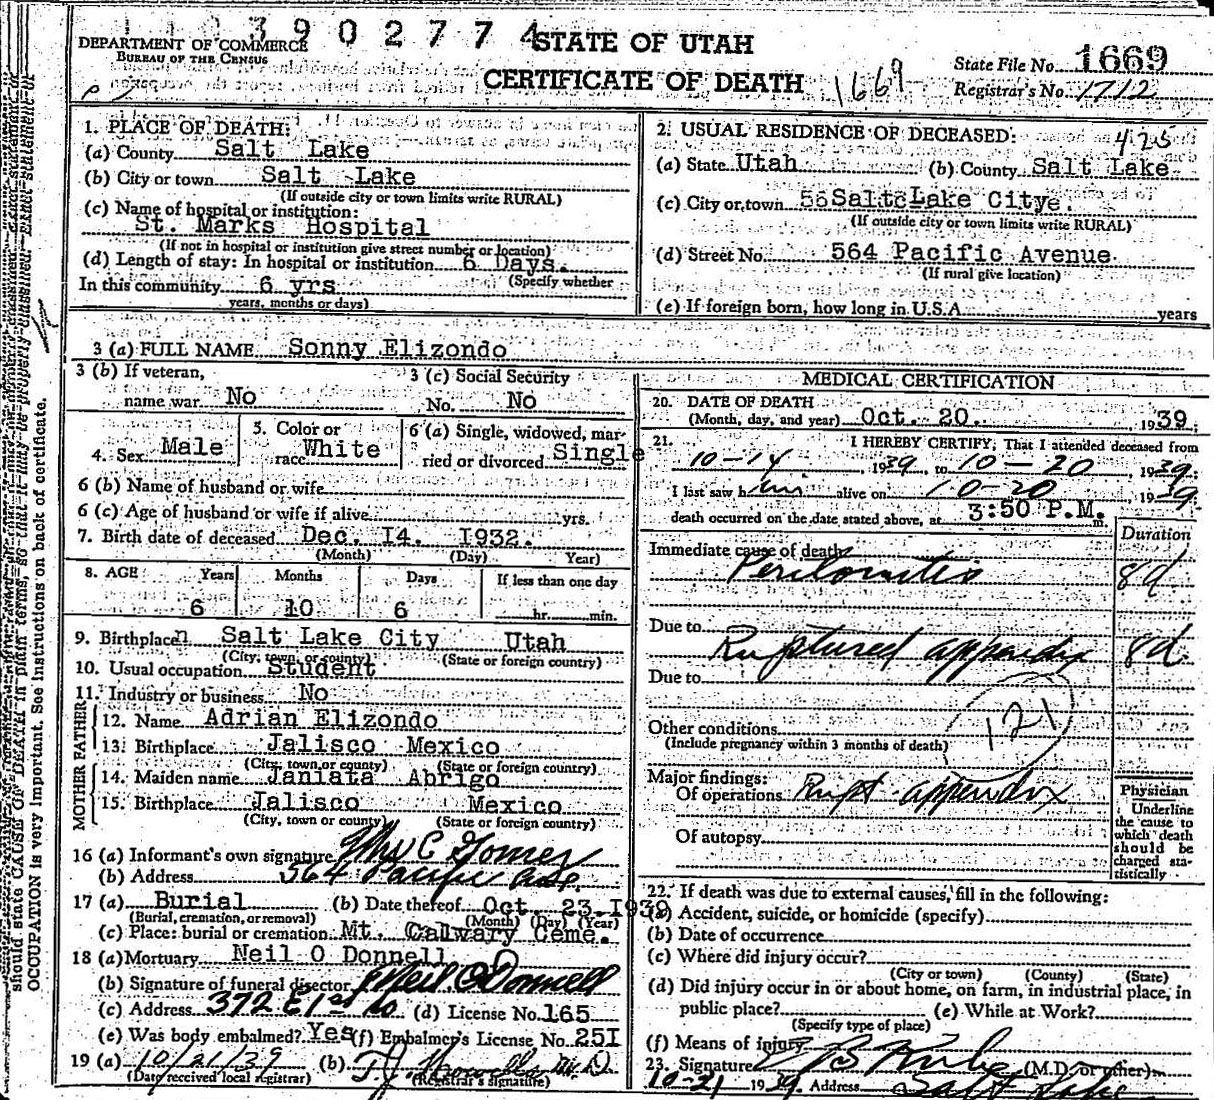 3902774
DEPARTMENT OF COMMERCE
BUREAU OF THE CENSUS
STATE OF UTAH
CERTIFICATE OF DEATH
1669
State File No. 1669
Registrar's No. 1712
1. PLACE OF DEATH:
(a) County Salt Lake
(b) City or town Salt Lake
(If outside city or town limits write RURAL)
(c) Name of hospital or institution:
St. Marks Hospital
(If not in hospital or institution give street number or location)
(d) Length of stay: In hospital or institution 6 Days.
(Specify whether
In this community 6 yrs
years, months or days)
2. USUAL RESIDENCE OF DECEASED: 425
(a) State Utah (b) County Salt Lake
(c) City or town Salt Lake City.
(If outside city or town limits write RURAL)
(d) Street No. 564 Pacific Avenue.
(If rural give location)
(e) If foreign born, how long in U.S.A. years
3 (a) FULL NAME Sonny Elizondo
3 (b) If veteran, 3 (c) Social Security
name war No No. No
4. Sex Male 5. Color or race White 6 (a) Single, widowed, married or divorced Single
6 (b) Name of husband or wife
6 (c) Age of husband or wife if alive yrs.
7. Birth date of deceased Dec. I4. I932.
(Month) (Day) Year)
8. AGE Years Months Days If less than one day
6 10 6 hr. min.
9. Birthplace Salt Lake City Utah
(City, town, or county) (State or foreign country)
10. Usual occupation Student
11. Industry or business No
FATHER
12. Name Adrian Elizondo
13. Birthplace Jalisco Mexico
(City, town, or county) (State or foreign country)
MOTHER
14. Maiden name Janiata Abrigo
15. Birthplace Jalisco Mexico
(City, town or county) (State or foreign country)
16 (a) Informant's own signature Mrs C Gomez
(b) Address 564 Pacific Ave.
17 (a) Burial (b) Date thereof Oct. 23. I939
(Burial, cremation, or removal) (Month) (Day) (Year)
(c) Place: burial or cremation Mt. Calwary Ceme.
18 (a) Mortuary Neil O Donnell
(b) Signature of funeral director Neil O'Donnell
(c) Address 372 E 1st So (d) License No. 165
(e) Was body embalmed? Yes (f) Embalmer's License No. 25I
19 (a) 10/21/39 (b) T.J. M.D.
(Date received local registrar) (Registrar's signature)
MEDICAL CERTIFICATION
20. DATE OF DEATH
(Month, day, and year) Oct. 20. 1939.
21. I HEREBY CERTIFY, That I attended deceased from
10-14, 1939, to 10-20, 1939.
I last saw him alive on 10-20, 1939.
death occurred on the date stated above, at 3:50 P.M. m.
Duration
Immediate cause of death
Peritonitis 8d
Due to
Ruptured appendix 8d.
Due to
121
Other conditions
(Include pregnancy within 3 months of death)
Major findings:
Of operations Rupt appendix
Of autopsy
Physician
Underline
the cause to
which death
should be
charged sta-
tistically
22. If death was due to external causes, fill in the following:
(a) Accident, suicide, or homicide (specify)
(b) Date of occurrence
(c) Where did injury occur?
(City or town) (County) (State)
(d) Did injury occur in or about home, on farm, in industrial place, in
public place? (e) While at Work?
(Specify type of place)
(f) Means of injury
23. Signature (M.D. or other)
10-21 1939. Address Salt Lake
should state CAUSE OF DEATH in plain terms, so that it may be properly classified. Exact statement of
OCCUPATION is very important. See instructions on back of certificate.